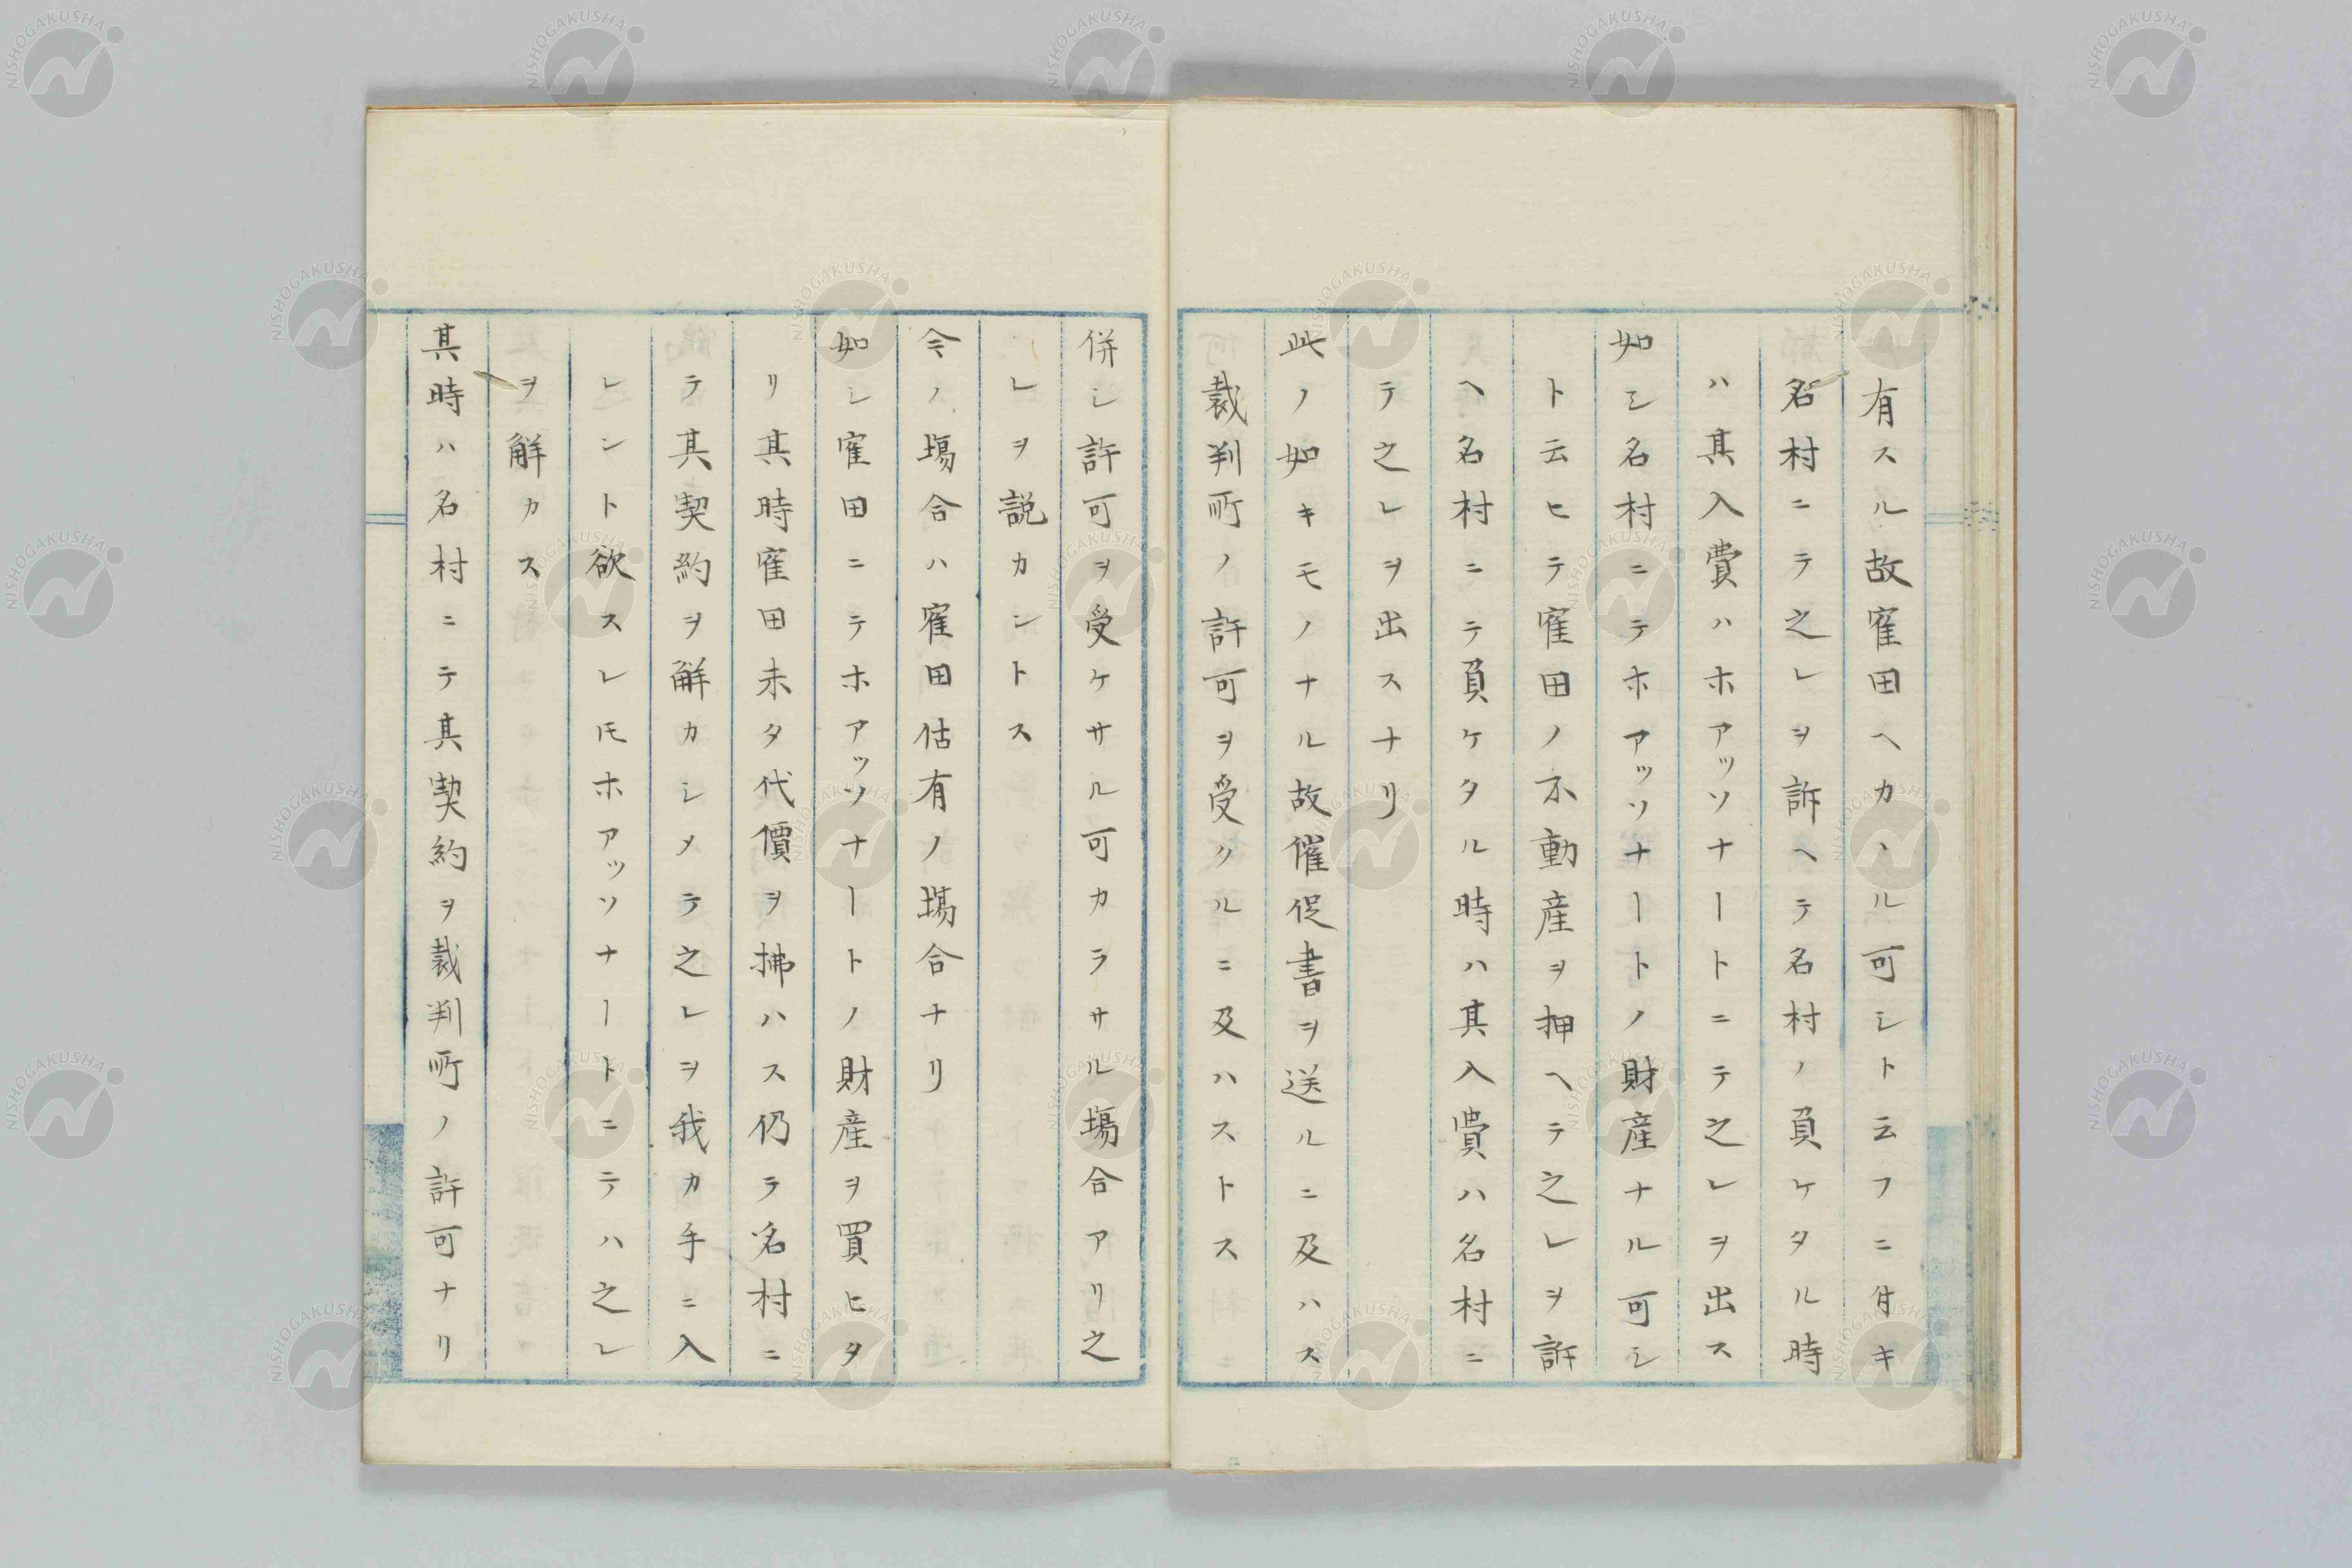 有スル故窪田ヘカヽル可シト云フニ付キ
名村ニテ之レヲ訴ヘテ名村ノ負ケタル時
ハ其入費ハホアッソナートニテ之レヲ出ス
如シ名村ニテホアッソナートノ財産ナル可シ
ト云ヒテ窪田ノ不動産ヲ押ヘテ之レヲ許
ヘ名村ニテ負ケタル時ハ其入費ハ名村ニ
テ之レヲ出スナリ
此ノ如キモノナル故催促書ヲ送ルニ及ハス
裁判所ノ許可ヲ受クルニ及ハストス
併シ許可ヲ受ケサル可カラサル場合アリ之
レヲ説カントス
今ノ場合ハ窪田估有ノ場合ナリ
如シ窪田ニテホアッソナートノ財産ヲ買ヒタ
リ其時窪田未タ代價ヲ拂ハス仍テ名村ニ
テ其契約ヲ解カシメテ之レヲ我カ手ニ入
レント欲スレ𪜈ホアッソナートニテハ之レ
ヲ解カス
其時ハ名村ニテ其契約ヲ裁判所ノ許可ナリ
NISHOGAKUSHA